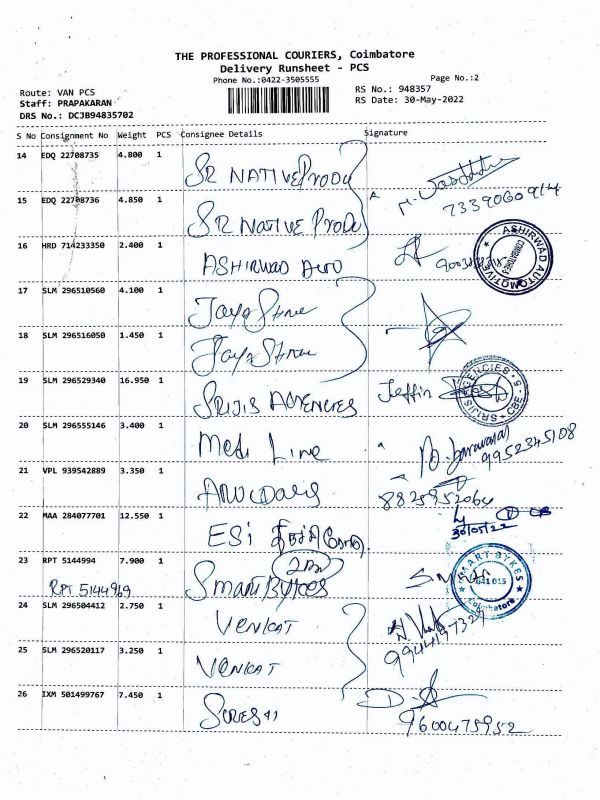 THE PROFESSIONAL COURIERS, Coimbatore
Delivery Runsheet - PCS
Phone No.:0422-3505555
Page No.:2
Route: VAN PCS
RS No.: 948357
Staff: PRAPAKARAN
RS Date: 30-May-2022
DRS No.: DCJB94835702
S No Consignment No Weight PCS Consignee Details Signature
14 EDQ 22708735 4.800 1 SR NATIVE PRODU
15 EDQ 22708736 4.850 1 SR NATIVE PRODU
7339060914
16 HRD 714233350 2.400 1 ASHIRWAD AUTO
ASHIRWAD AUTOMOTIVE
COIMBATORE
17 SLM 296510560 4.100 1 Jaya Store
18 SLM 296516050 1.450 1 Jaya Store
19 SLM 296529340 16.950 1 SRIJIS AGENCIES Jeffin
SRIJIS AGENCIES CBE - 5
20 SLM 296555146 3.400 1 Medi Line
9952345108
21 VPL 939542889 3.350 1
8825952064
22 MAA 284077701 12.550 1 ESI
30/05/22
23 RPT 5144994 7.900 1 SMART BYKES
RPT 5144969
SMART BYKES
641 015
Coimbatore
24 SLM 296504412 2.750 1 VENKAT
9944197329
25 SLM 296520117 3.250 1 VENKAT
26 IXM 501499767 7.450 1 SURESH
9600475952